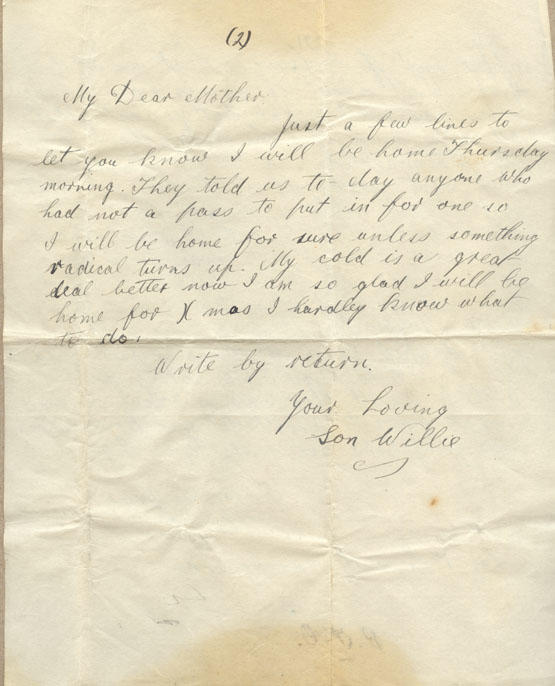 (2)
My Dear Mother
Just a few lines to
let you know I will be home Thursday
morning. They told us to day anyone who
had not a pass to put in for one so
I will be home for sure unless something
radical turns up. My cold is a great
deal better now I am so glad I will be
home for X mas I hardley know what
to do.
Write by return.
Your Loving
Son Willie